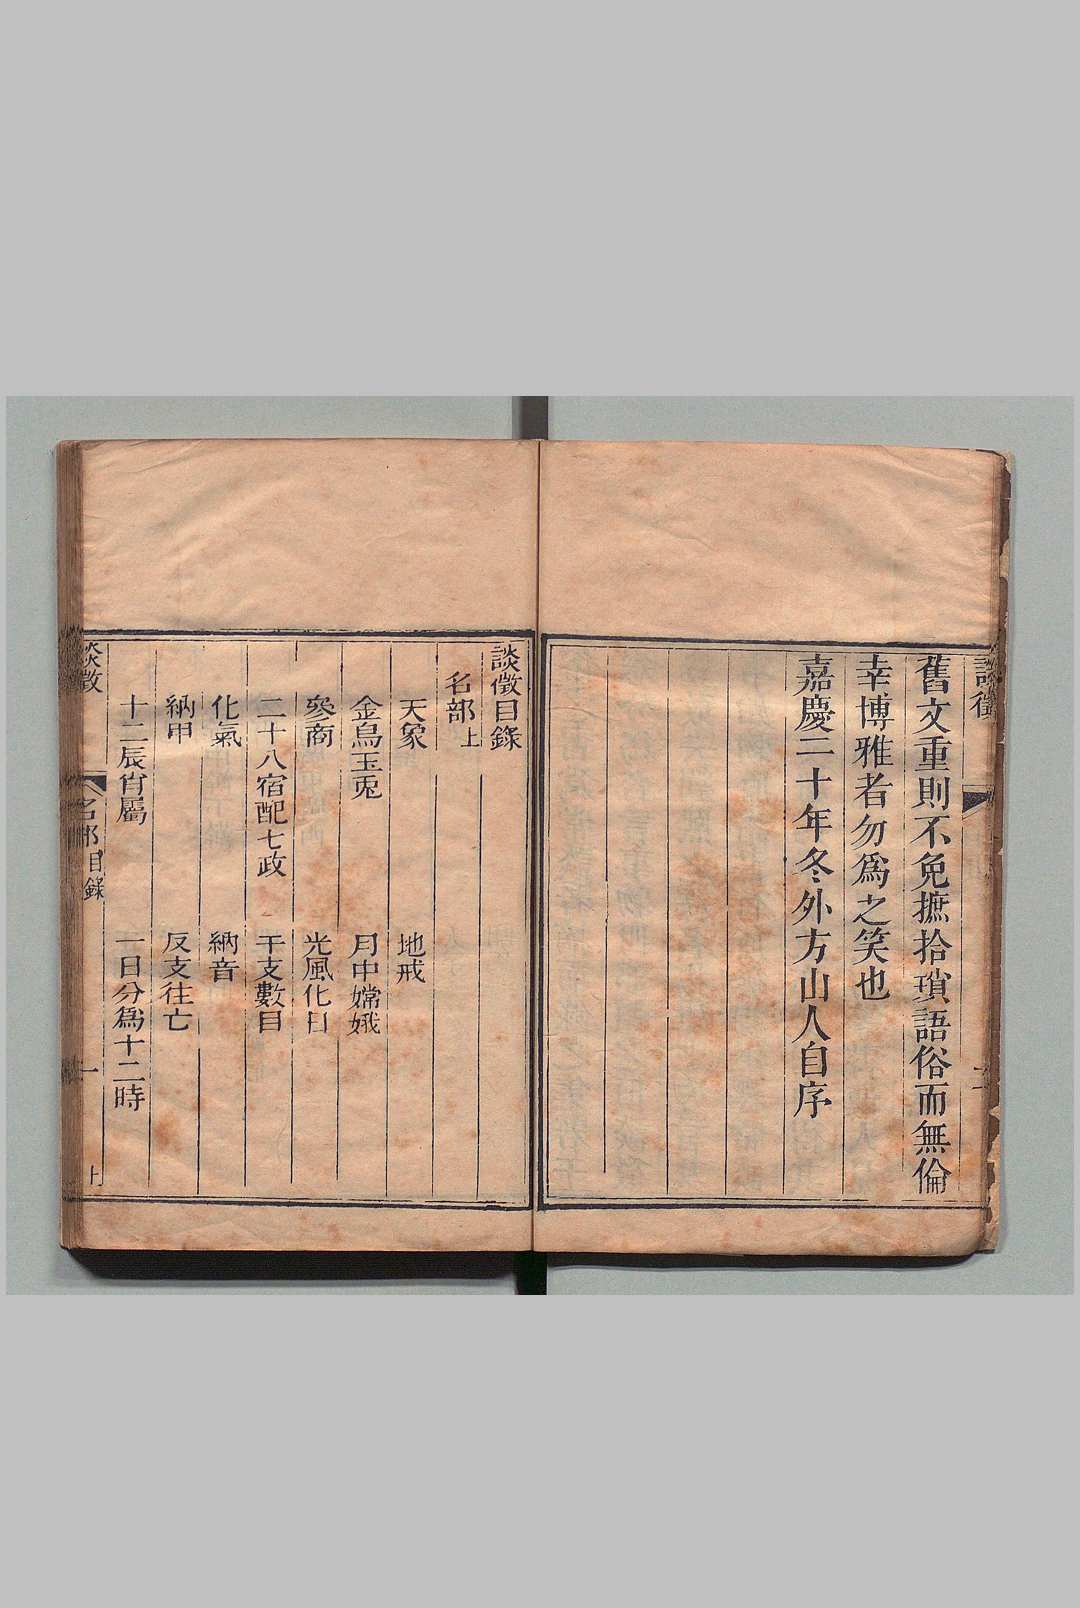 談徵
二
舊文重則不免摭拾瑣語俗而無倫
幸博雅者勿爲之笑也
嘉慶二十年冬外方山人自序
談徵目錄
名部上
天象 地戒
金烏玉兎 月中嫦娥
參商 光風化日
二十八宿配七政 干支數目
化氣 納音
納甲 反支往亡
十二辰肖屬 一日分爲十二時
談徵
名部目錄
一
上